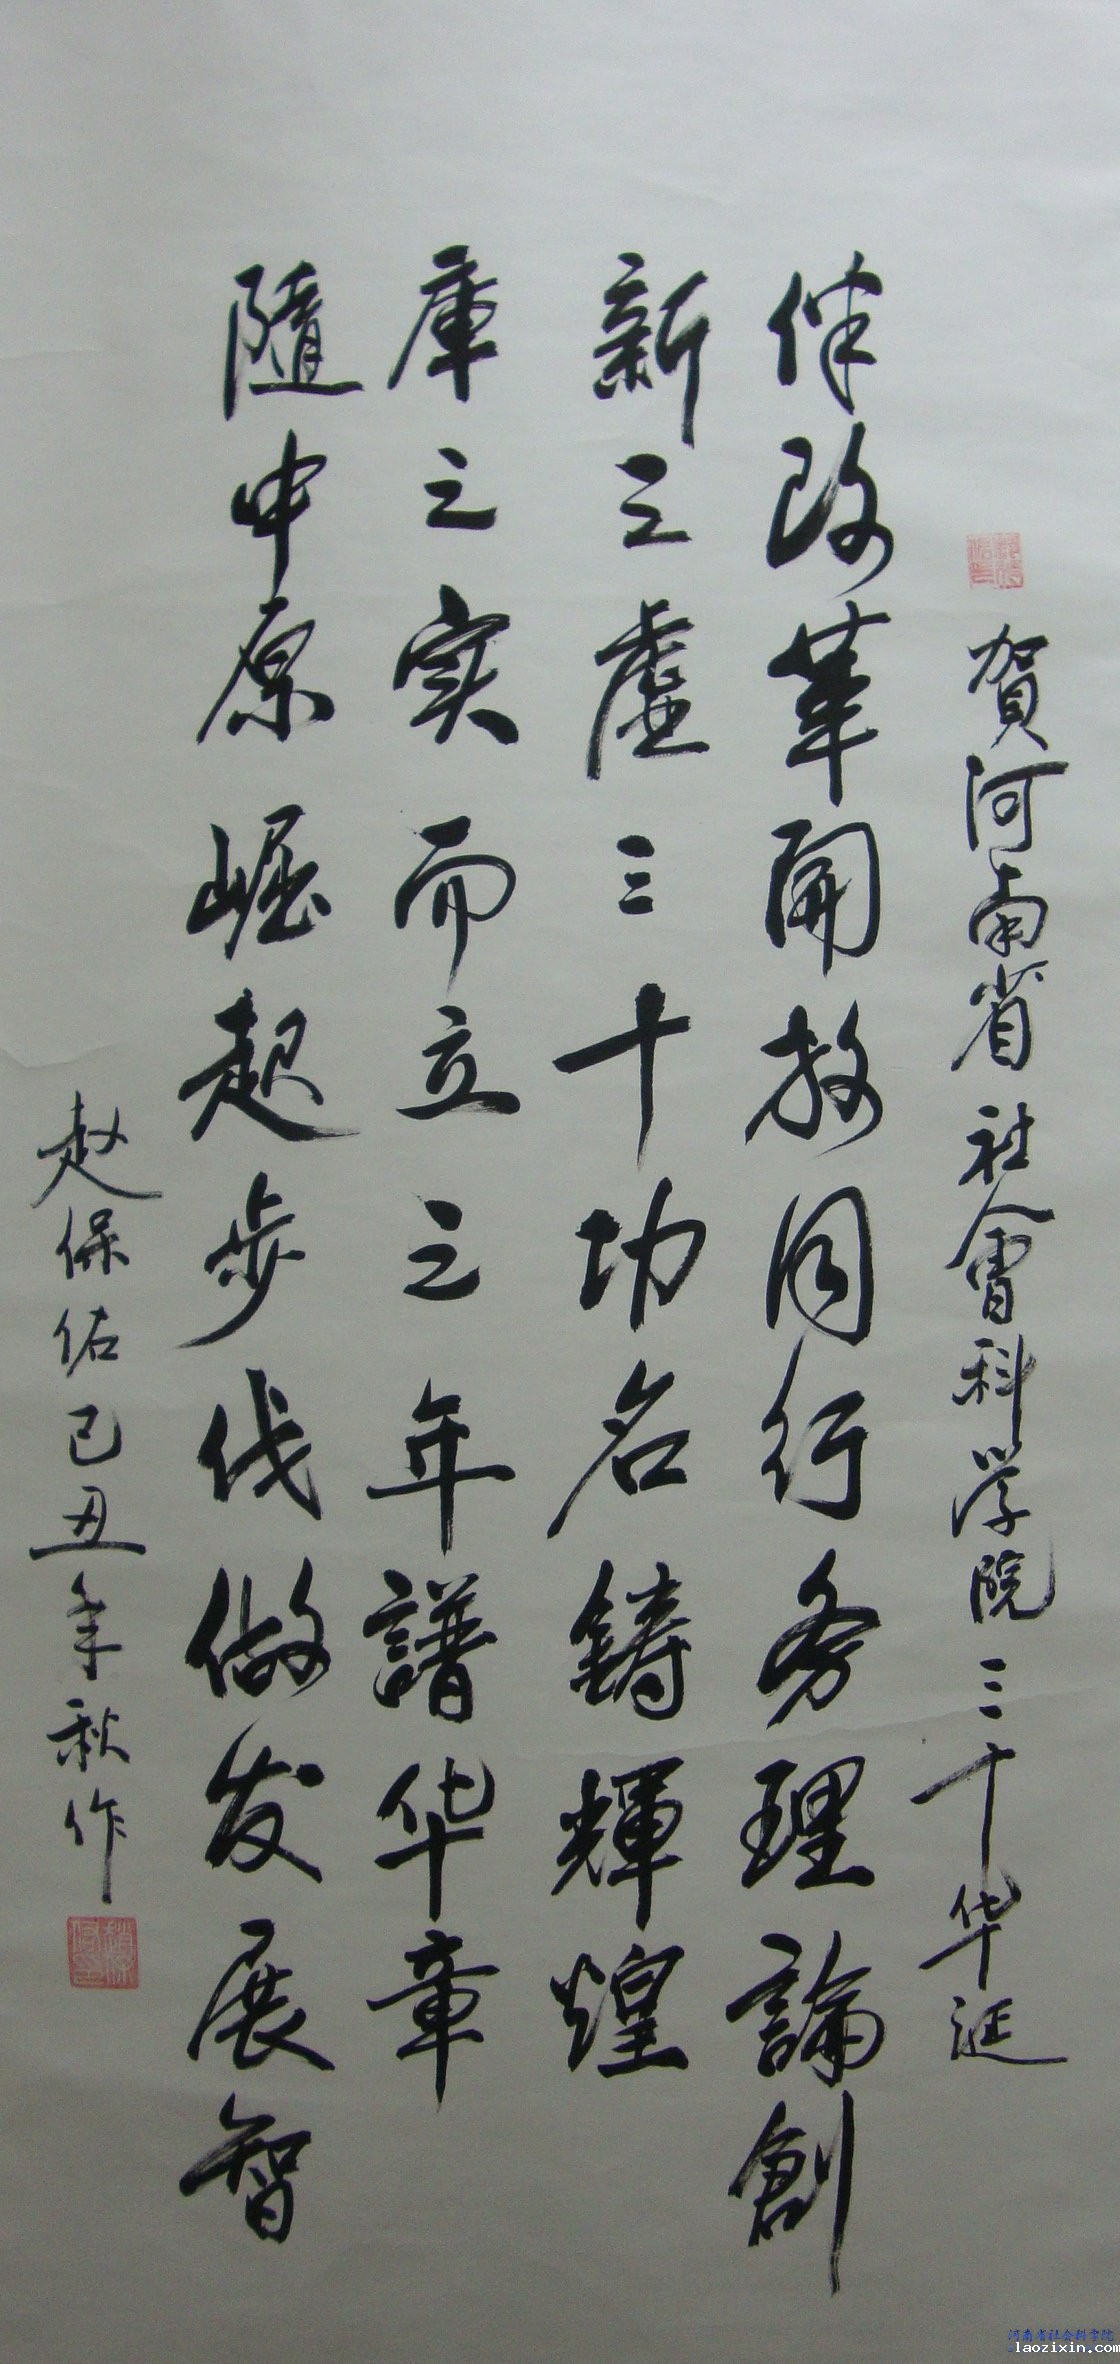 賀河南省社會科学院三十华诞
伴改革開放同行务理論創
新之虚三十功名鑄輝煌
隨中原崛起步伐做发展智
庫之实而立之年譜华章
赵保佑己丑年秋作
河南省社会科学院
laozixin.com